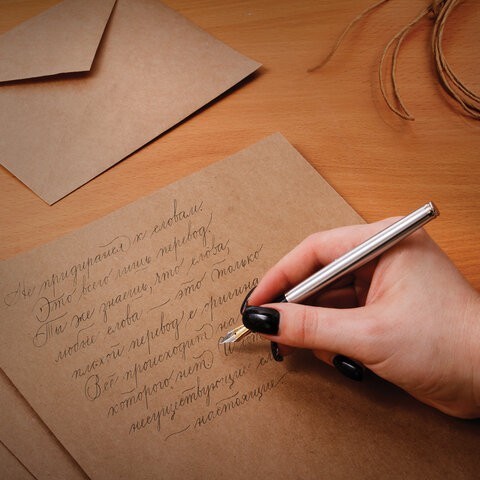 Не придирайся к словам.
Это всего лишь перевод.
Ты же знаешь, что слова,
любые слова — это только
плохой перевод с оригина
Всё происходит на
которого нет. И
несуществующие е
— настоящие.